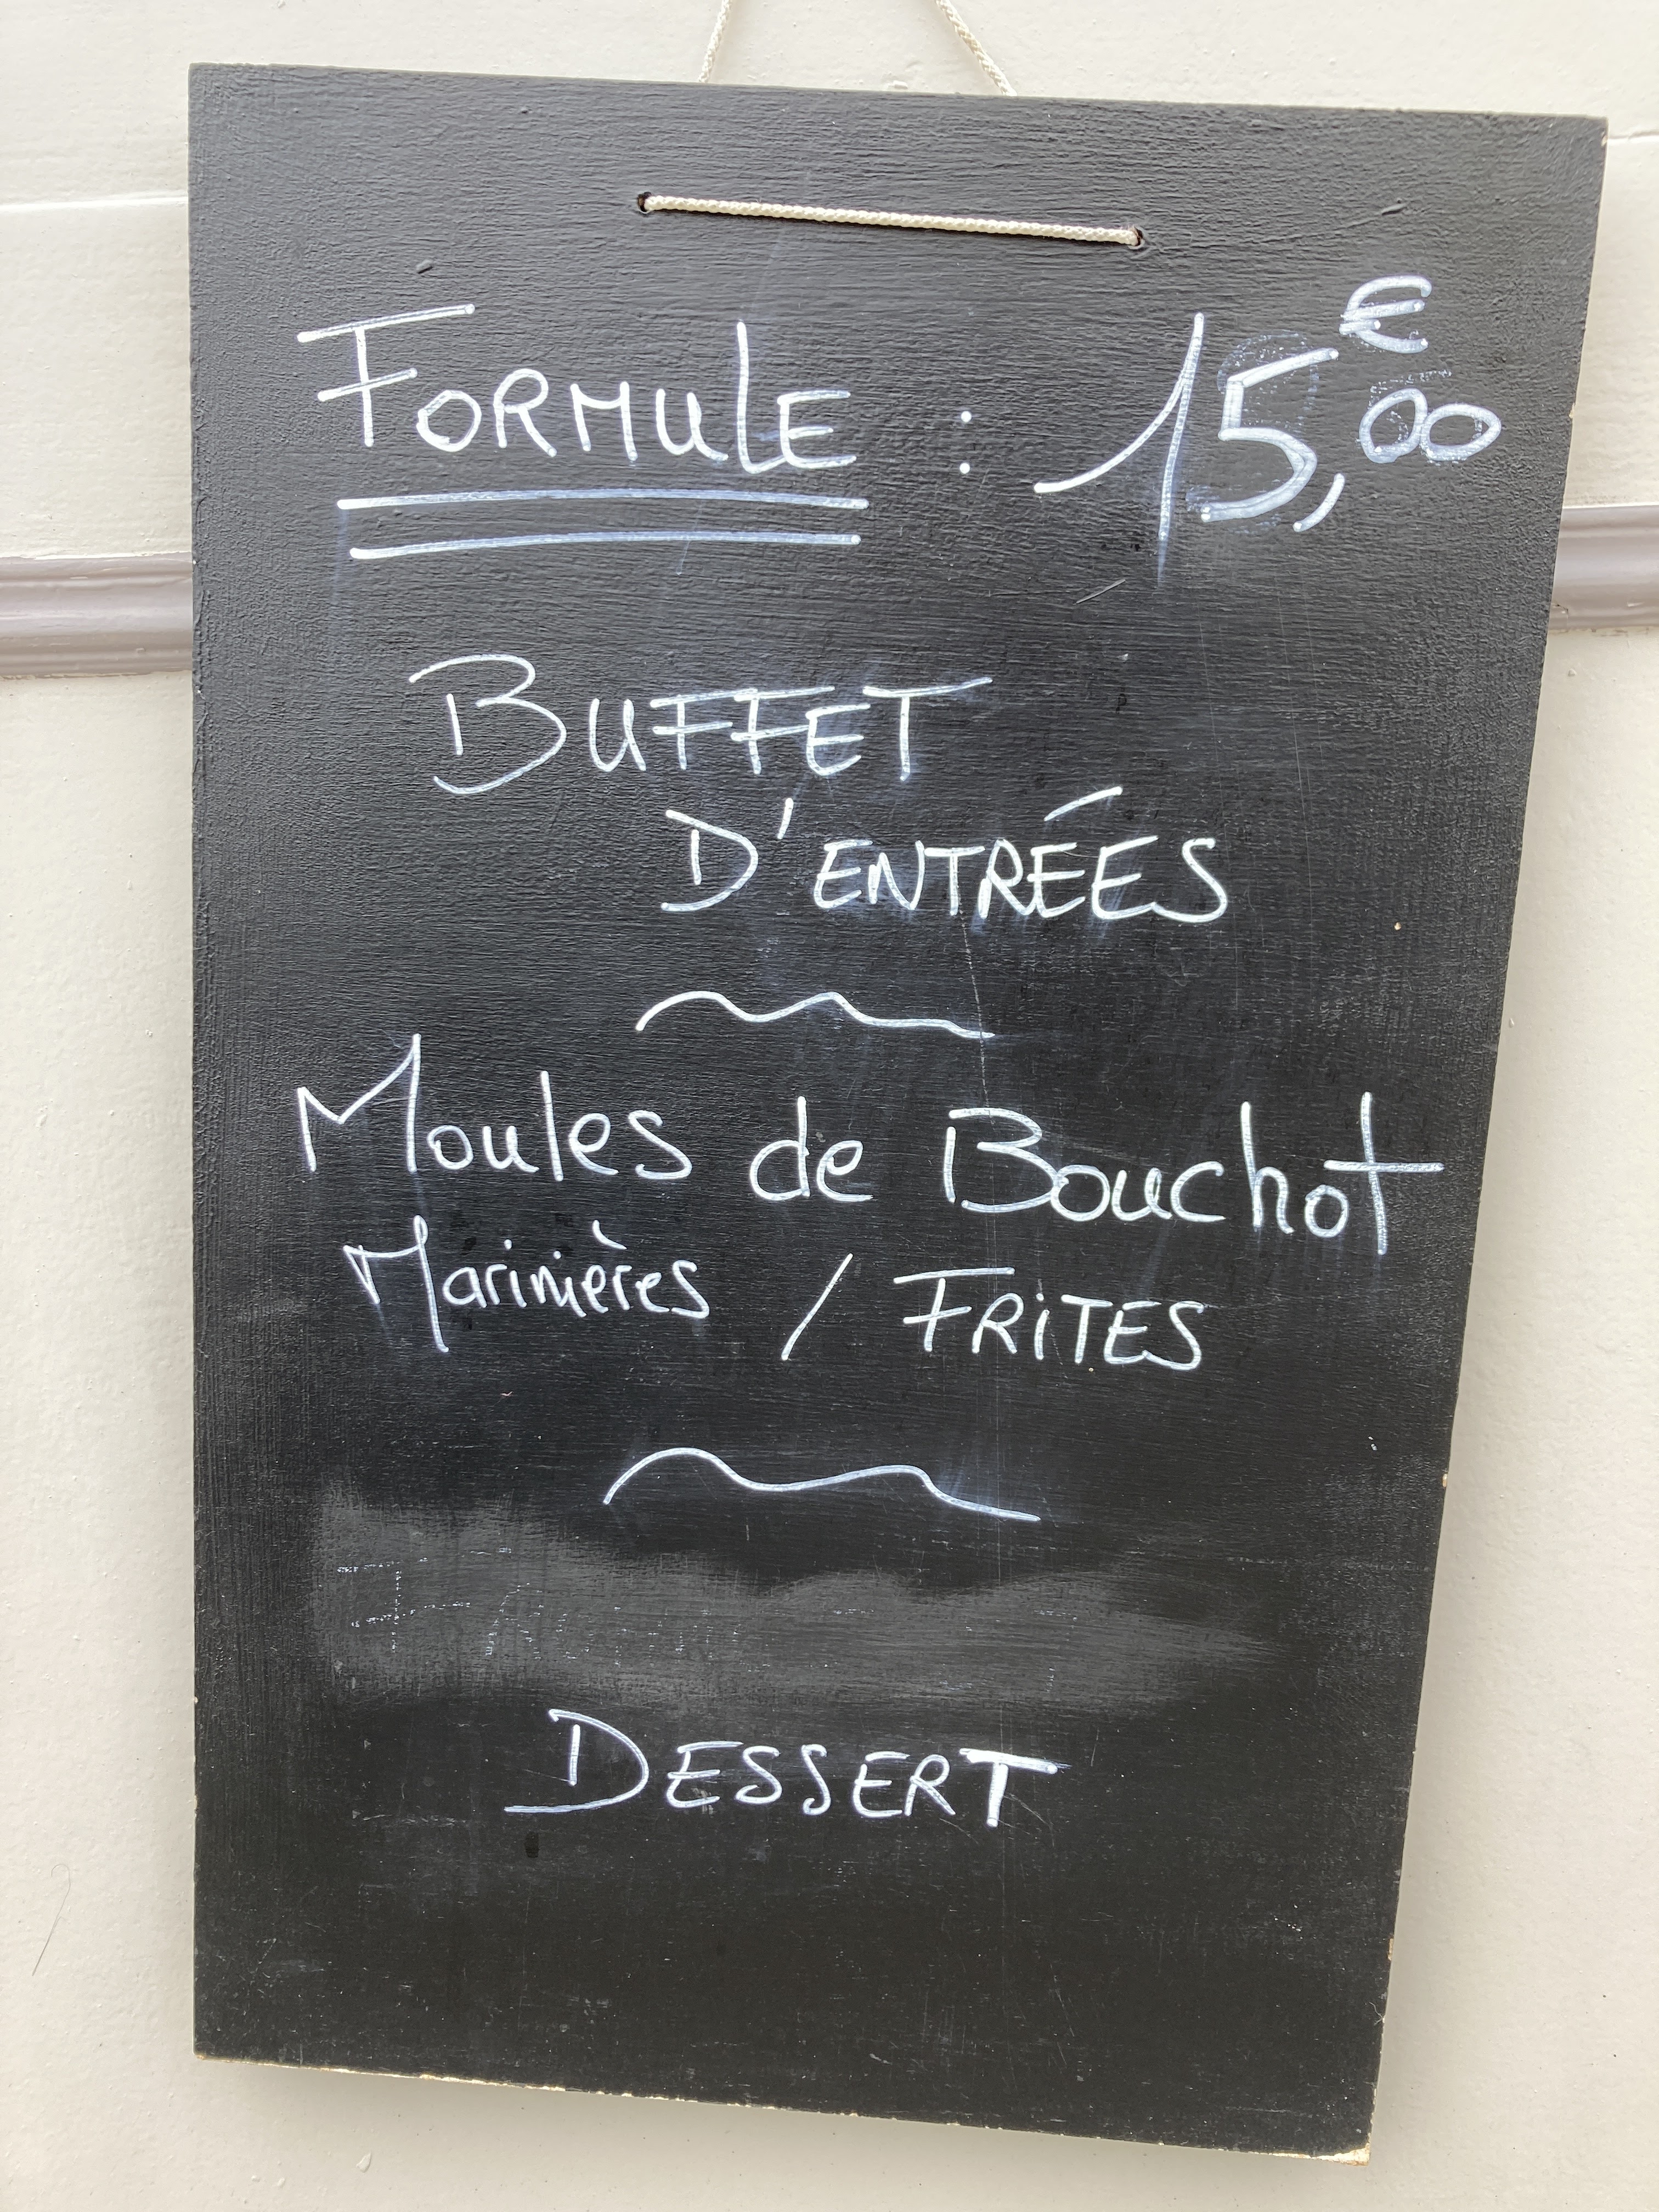 FORMULE : 15,00 €
BUFFET
D'ENTRÉES
Moules de Bouchot
Marinières / FRITES
DESSERT